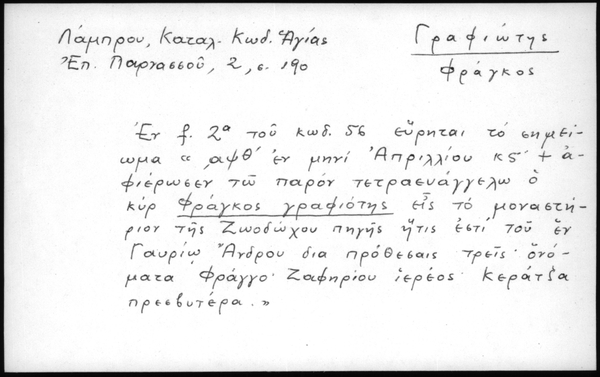 Λάμπρου, Καταλ. Κωδ. Ἁγίας
Ἐπ. Παρνασσοῦ, 2, σ. 190
Γραφιώτης
Φράγκος
Ἐν f. 2α τοῦ κωδ. 56 εὕρηται τό σημεί-
ωμα « ͵αψθ´ ἐν μηνί Ἀπριλλίου κς´ + ἀ-
φιέρωσεν τῶ παρόν τετραευάγγελω ὁ
κύρ Φράγκος γραφιότης εἶς τό μοναστή-
ριον τῆς Ζωοδώχου πηγῆς ἥτις ἐστί τοῦ ἐν
Γαυρίῳ Ἄνδρου δια πρόθεσαις τρεῖς· ὀνό-
ματα Φράγγο· Ζαφηρίου ἱερέος· Κεράτζα
πρεσβυτέρα.»